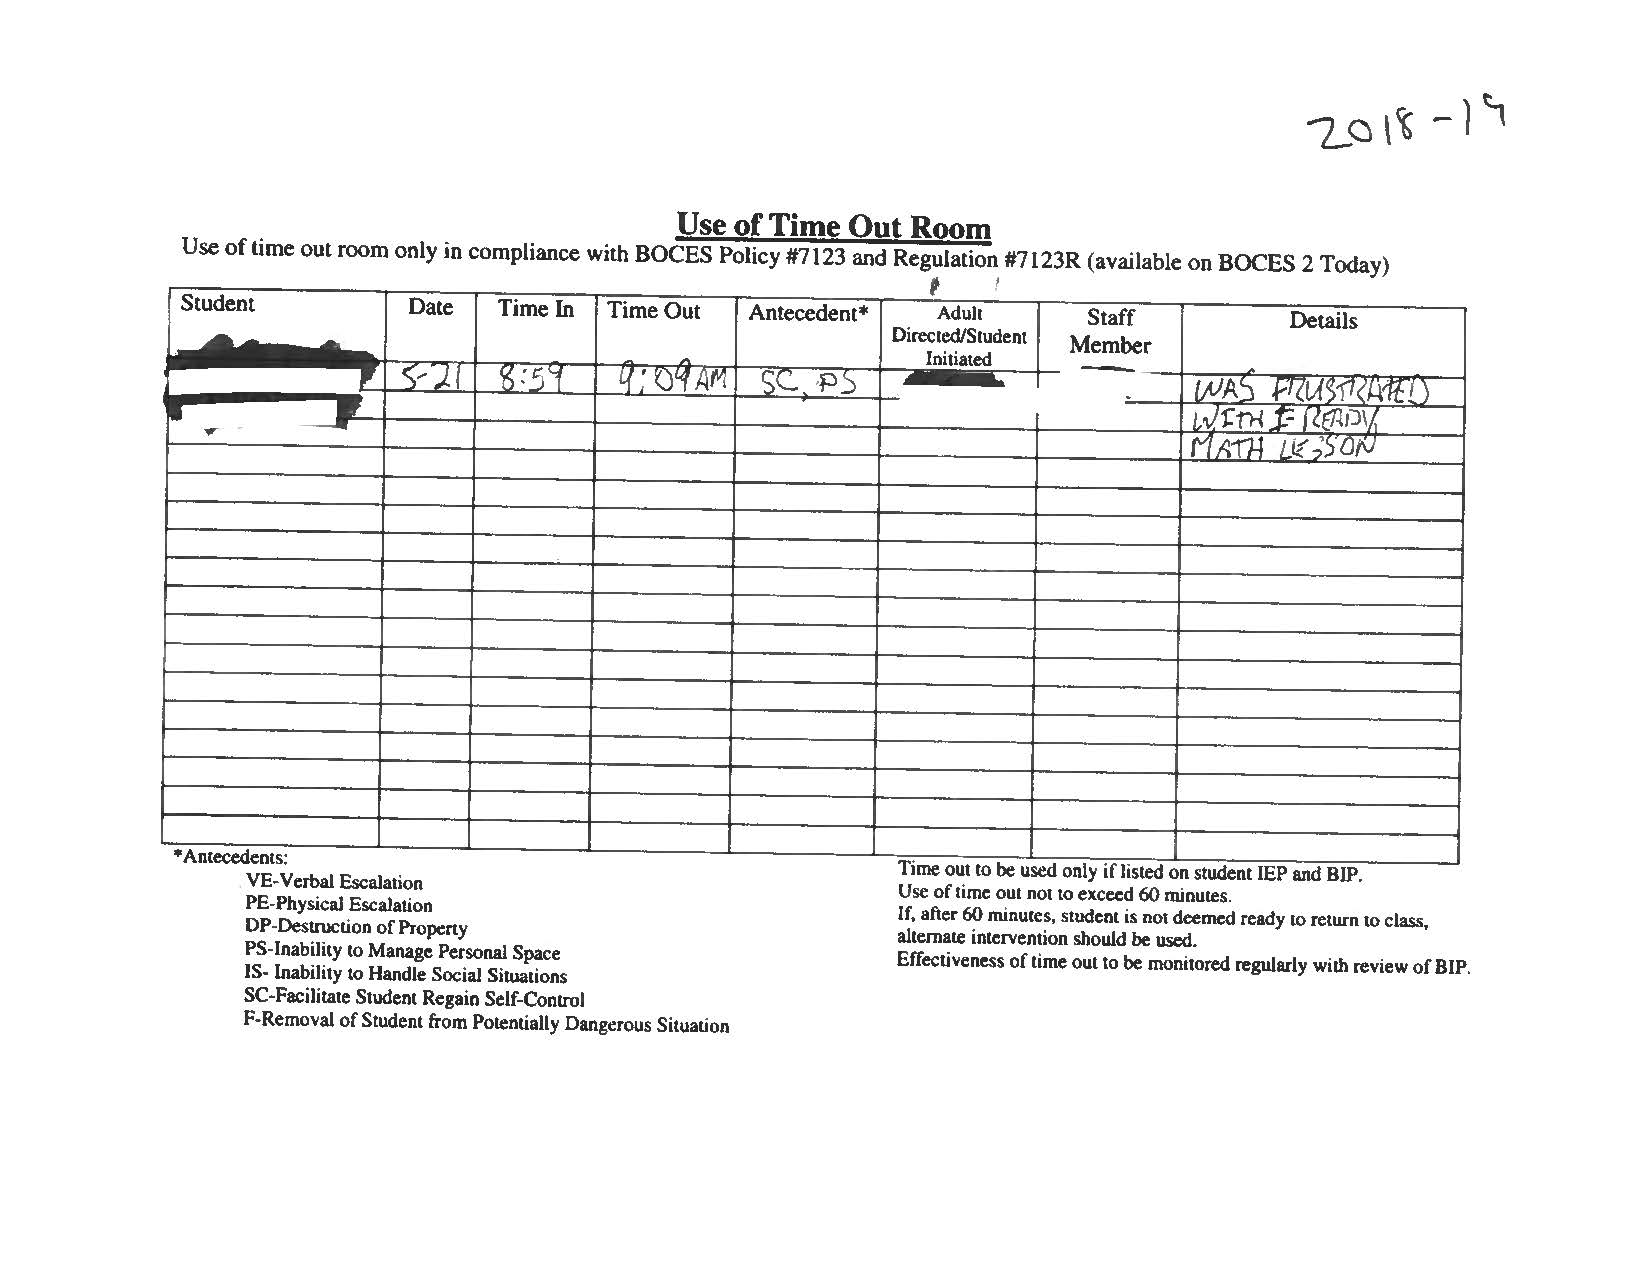 2018-19
Use of Time Out Room
Use of time out room only in compliance with BOCES Policy #7123 and Regulation #7123R (available on BOCES 2 Today)
Student Date Time In Time Out Antecedent* Adult Directed/Student Initiated Staff Member Details
5-21 8:59 9:09 AM SC, PS WAS FRUSTRATED
WITH I READY
MATH LESSON
*Antecedents:
VE-Verbal Escalation
PE-Physical Escalation
DP-Destruction of Property
PS-Inability to Manage Personal Space
IS- Inability to Handle Social Situations
SC-Facilitate Student Regain Self-Control
F-Removal of Student from Potentially Dangerous Situation
Time out to be used only if listed on student IEP and BIP.
Use of time out not to exceed 60 minutes.
If, after 60 minutes, student is not deemed ready to return to class,
alternate intervention should be used.
Effectiveness of time out to be monitored regularly with review of BIP.